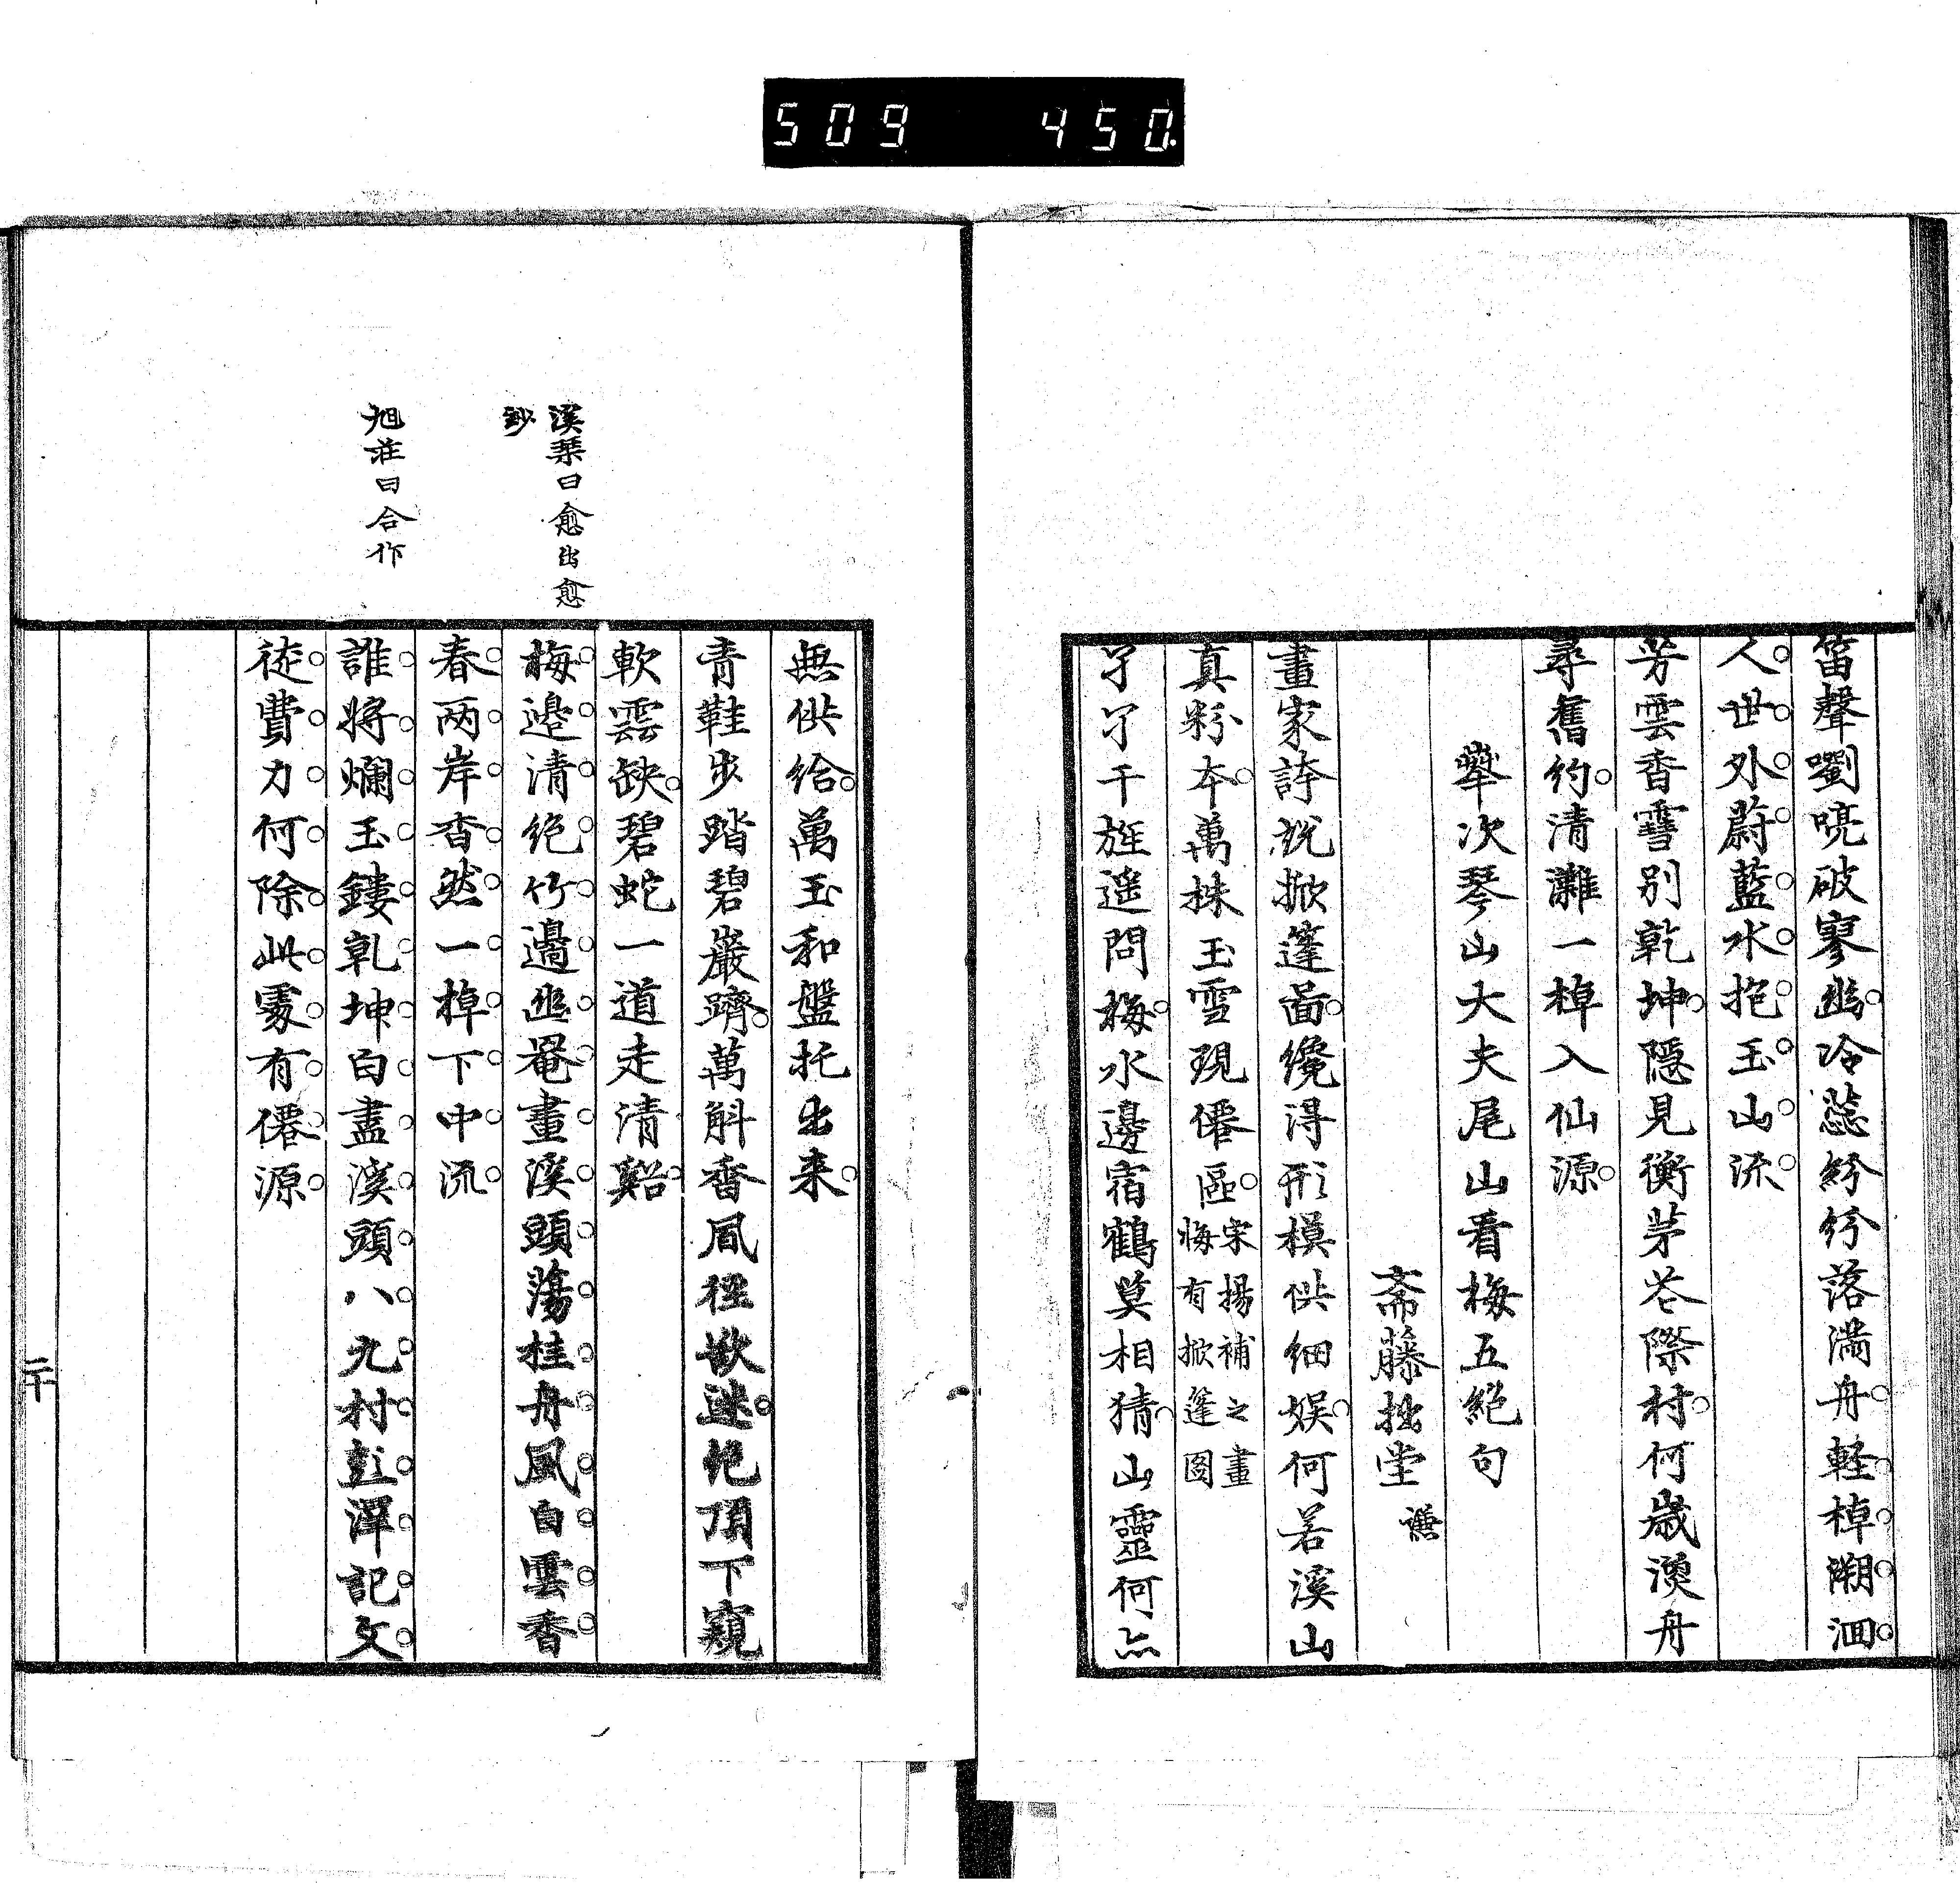 509 450
笛聲嚠喨破寥幽冷蕊紛紛落滿舟軽棹溯洄
人世外蔚藍水抱玉山流
芳雲香雪別乾坤隠見衡茅谷際村何歳漁舟
尋舊約清灘一棹入仙源
舉次琴山大夫尾山看梅五絕句
斋藤拙堂 謙
畫家誇説掀篷啚纔淂形模供細娯何若溪山
真粉本萬株玉雪現僊區宋揚補之畫
梅有掀篷図
孑孑干旌遥問梅水邊宿鶴莫相猜山靈何点
溪琴曰愈出愈
鈔
旭荘曰合作
無供給萬玉和盤托出来
青鞋步踏碧巖躋萬斛香風徑欲迷絶頂下窺
軟雲缺碧蛇一道走清谿
梅邊清絶竹邊幽罨畫溪頭蕩桂舟風白雲香
春两岸杳然一棹下中流
誰將爛玉鏤乹坤白盡溪頭八九村彭澤記文
徒費力何除此處有僊源
二十